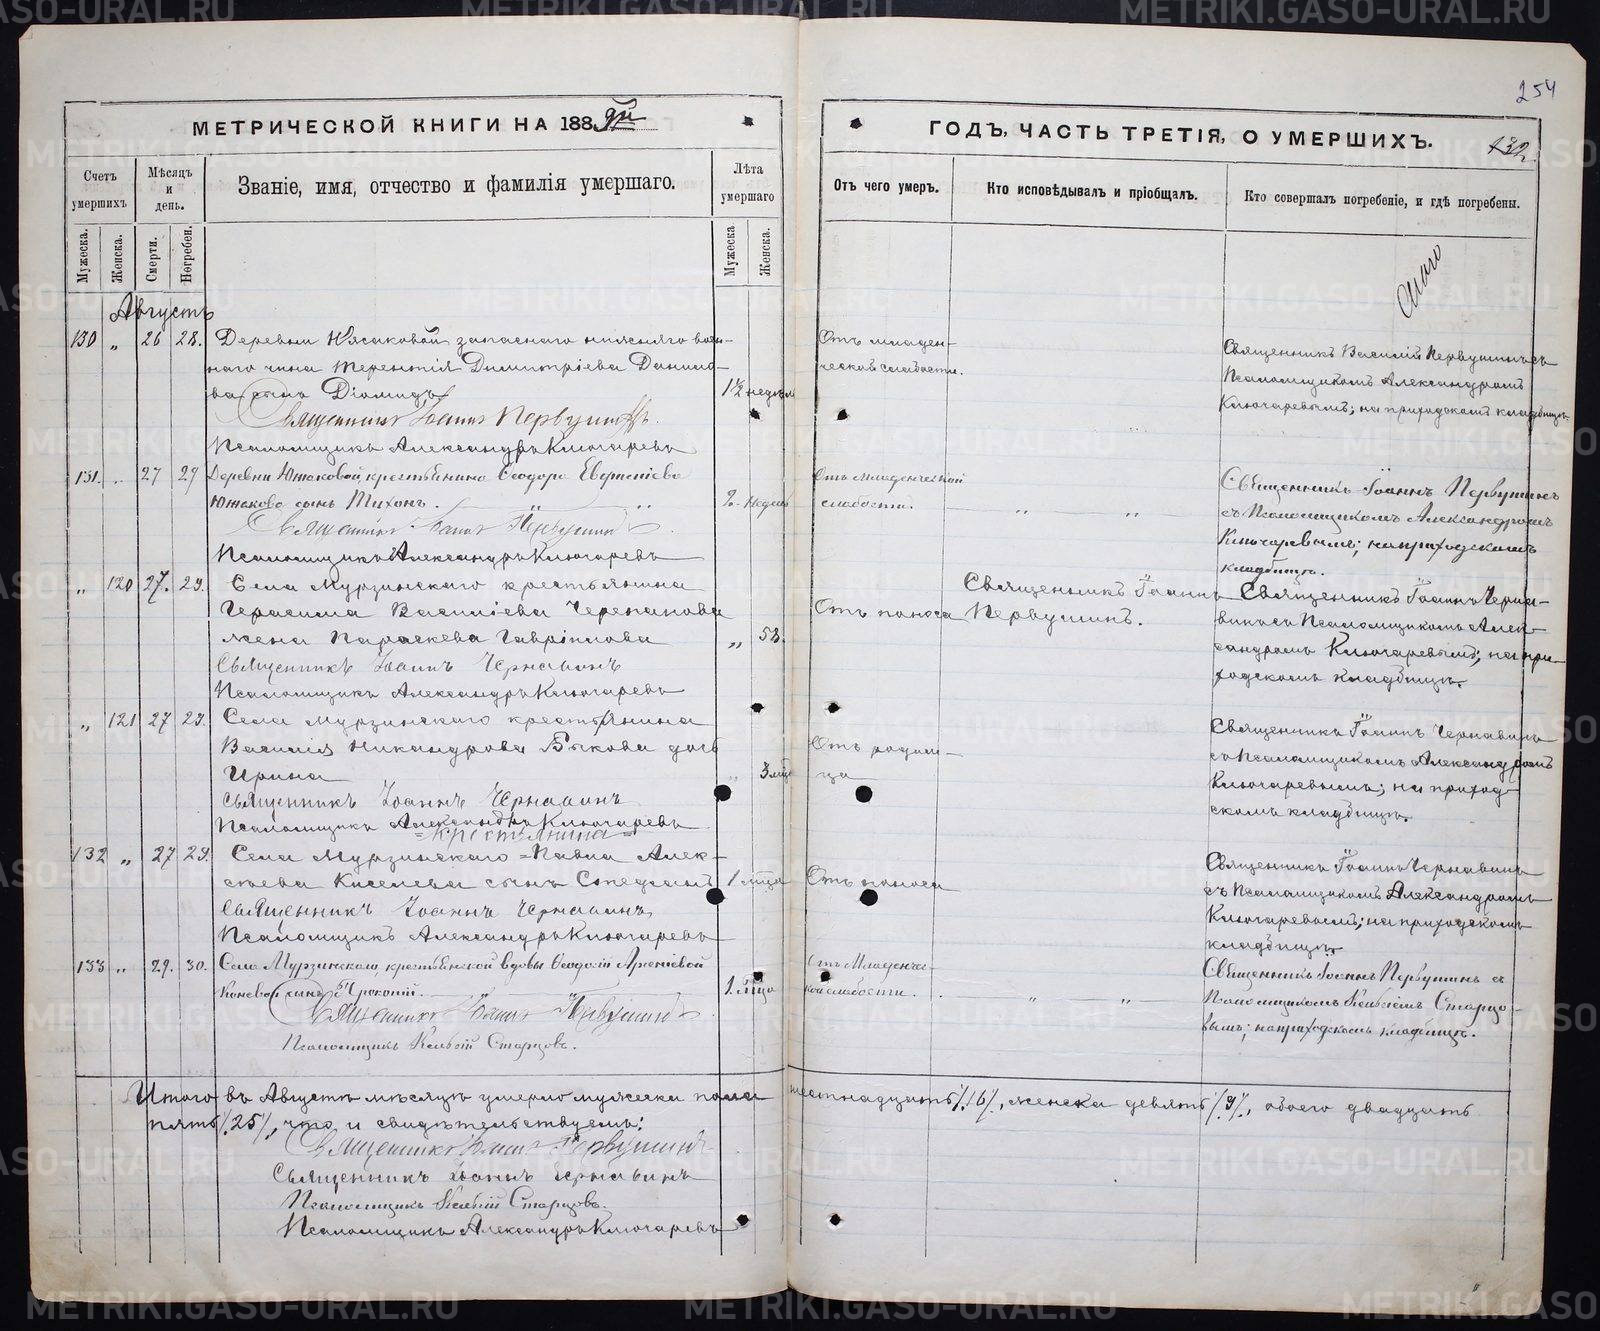 254
МЕТРИЧЕСКОЙ КНИГИ НА 1889й
ГОДЪ, ЧАСТЬ ТРЕТІЯ, О УМЕРШИХЪ.
132
Счетъ умершихъ
Мѣсяцъ и день.
Званіе, имя, отчество и фамилія умершаго.
Лѣта умершаго
Отъ чего умеръ.
Кто исповѣдывалъ и пріобщалъ.
Кто совершалъ погребеніе, и гдѣ погребены.
Мужеска.
Женска.
Смерти.
Погребен.
Мужеска
Женска.
Августъ
130 „ 26 28. Деревни запаснаго нижняго воен-
наго чина Терентія Димитріева Данило-
ва сынъ Діомидъ
1½ недѣли
Отъ младен-
ческой слабости.
Священникъ Василій Первушинъ съ
Псаломщикомъ Александромъ
Ключаревымъ; на приходскомъ кладбищѣ
Священникъ Іоаннъ Первушинъ
Псаломщикъ Александръ Ключаревъ
131. „ 27 29 Деревни Южаковой крестьянина Ѳеодора Евгеніева
Южакова сынъ Тихонъ.
2 недѣль
Отъ младенческой
слабости.
Священникъ Іоаннъ Первушинъ
съ Псаломщикомъ Александромъ
Ключаревымъ; на приходскомъ
кладбищѣ.
Священникъ Іоаннъ Первушинъ
Псаломщикъ Александръ Ключаревъ
„ 120 27. 29. Села Мурзинскаго крестьянина
Герасима Василіева Черепанова
жена Параскева Гавріилова
„ 58.
Отъ поноса
Священникъ Іоаннъ
Первушинъ.
Священникъ Іоаннъ Черна-
винъ съ Псаломщикомъ Алек-
сандромъ Ключаревымъ; на при-
ходскомъ кладбищѣ.
Священникъ Іоаннъ Чернавинъ
Псаломщикъ Александръ Ключаревъ
„ 121 27 29. Села Мурзинскаго крестьянина
Василія Никандрова Быкова дочь
Ирина
„ 3 мѣс.
Отъ родим-
ца
Священникъ Іоаннъ Чернавинъ
съ Псаломщикомъ Александромъ
Ключаревымъ; на приход-
скомъ кладбищѣ.
Священникъ Іоаннъ Чернавинъ
Псаломщикъ Александръ Ключаревъ
=крестьянина=
132 „ 27 29. Села Мурзинскаго = Павла Алек-
сѣева Киселева сынъ Стефанъ
1 мѣсяца
Отъ поноса
Священникъ Іоаннъ Чернавинъ
съ Псаломщикомъ Александромъ
Ключаревымъ; на приходскомъ
кладбищѣ.
Священникъ Іоаннъ Чернавинъ
Псаломщикъ Александръ Ключаревъ
133 „ 29. 30. Села Мурзинскаго, крестьянской вдовы Ѳеодосіи Арсеніевой
Коневой сынъ Прокопій.
1. мѣсяца
Отъ младенчес-
кой слабости.
Священникъ Іоаннъ Первушинъ съ
Псаломщикомъ Старцо-
вымъ; на приходскомъ кладбищѣ.
Священникъ Іоаннъ Первушинъ
Псаломщикъ Старцовъ.
Итого въ Августѣ мѣсяцѣ умерло мужеска пола шестнадцать /16/, женска девять /9/, обоего двадцать
пять /25/, что и свидѣтельствуемъ:
Священникъ Іоаннъ Первушинъ
Священникъ Іоаннъ Чернавинъ
Псаломщикъ Старцовъ.
Псаломщикъ Александръ Ключаревъ
METRIKI.GASO-URAL.RU